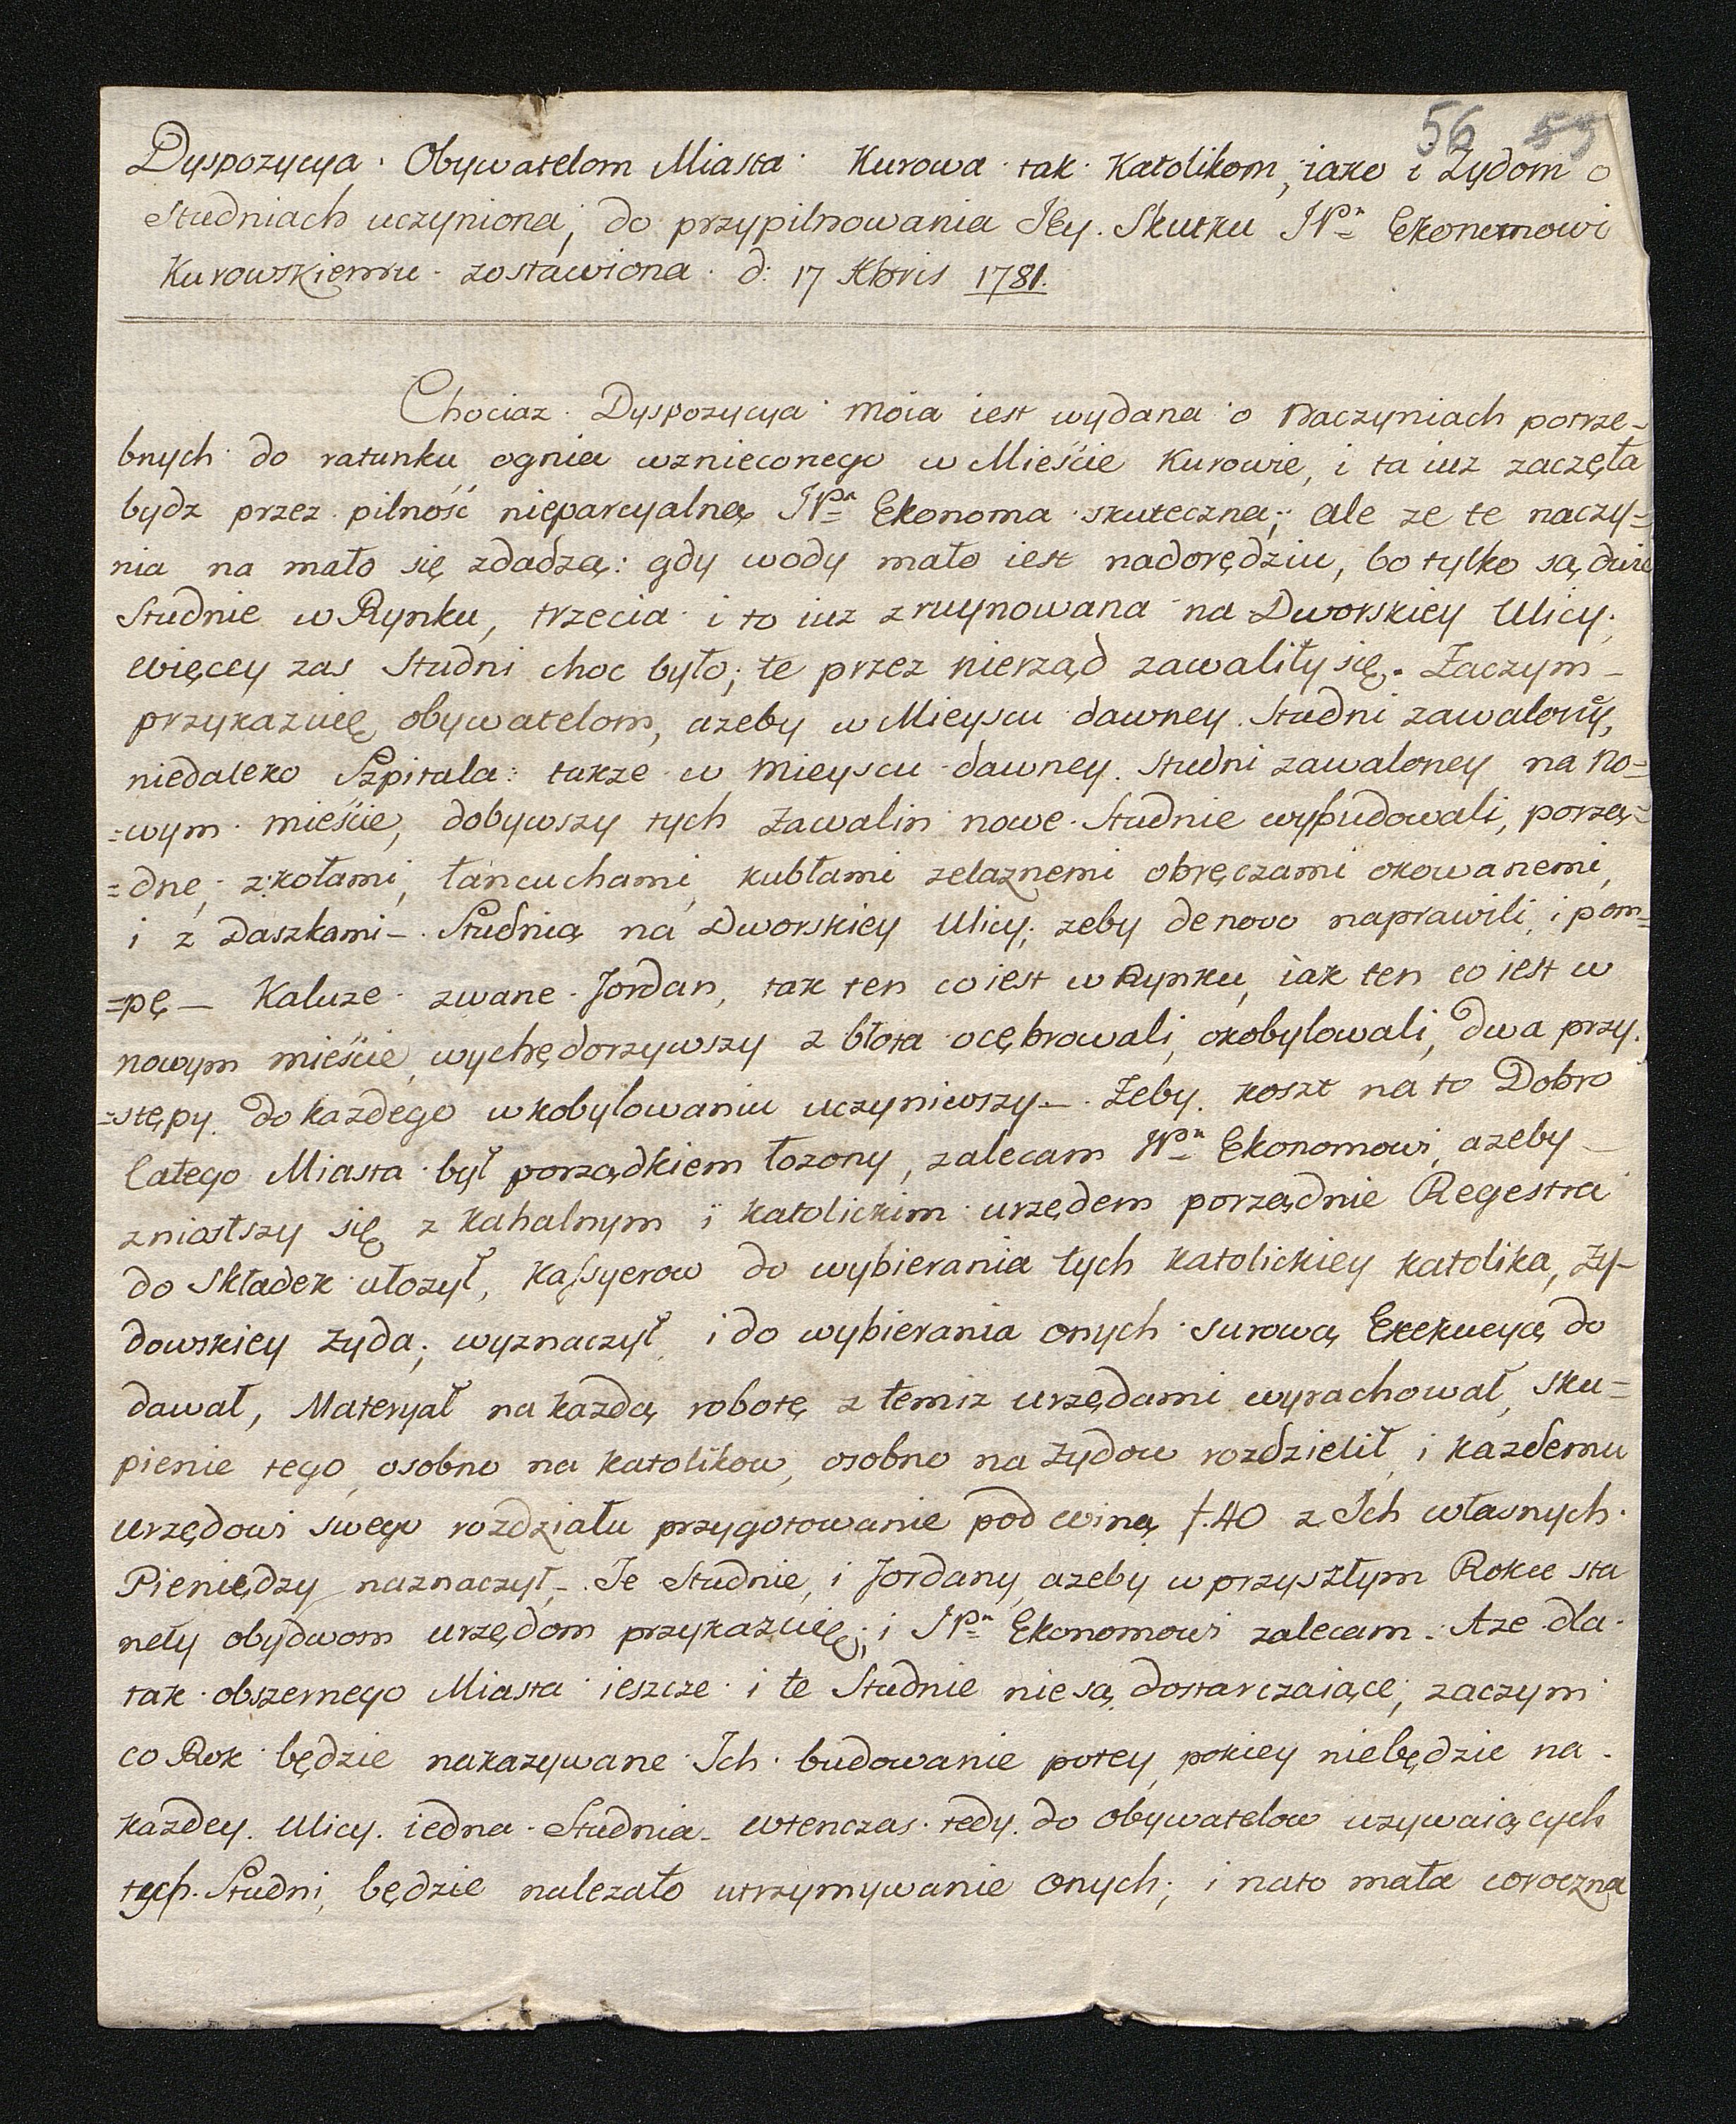 56 59
Dyspozycya Obywatelom Miasta Kurowa tak Katolikom, iako i Żydom o
Studniach uczyniona, do przypilnowania Jey Skutku JPn Ekonomowi
Kurowskiemu zostawiona d: 17 Xbris 1781.
Chociaz Dyspozycya moia iest wydana o Naczyniach potrze-
bnych do ratunku ognia wznieconego w Mieście Kurowie, i ta iuz zaczęła
bydz przez pilność nieparcyalną JPn Ekonoma skuteczna; ale ze te naczy=
nia na mało się zdadzą: gdy wody mało iest nadorędziu, bo tylko są dwie
Studnie w Rynku, trzecia i to iuz zruynowana na Dworskiey Ulicy;
więcey zas Studni choc było; te przez nierząd zawaliły się. Zaczym
przykazuię obywatelom, azeby w Mieyscu dawney Studni zawaloney,
niedaleko Szpitala: takze w mieyscu dawney Studni zawaloney na No=
=wym mieście, dobywszy tych Zawalin nowe Studnie wybudowali, porzą=
=dne, z kołami, łańcuchami, kubłami zelaznemi obręczami okowanemi,
i z Daszkami -. Studnią na Dworskiey Ulicy; zeby denovo naprawili, i pom=
=pę - Kaluze zwane Jordan, tak ten co iest w Rynku, iak ten co iest w
nowym mieście, wychędorzywszy z błota ocębrowali, okobylowali, dwa przy.
=stępy do kazdego w kobylowaniu uczyniwszy -. Zeby koszt na to Dobro
Całego Miasta był porządkiem łozony, zalecam JPn Ekonomowi, azeby
zniosłszy się z Kahalnym i Katolickim urzędem porządnie Regestra
do Składek ułozył, Kassyerow do wybierania tych Katolickiey Katolika, Zy-
dowskiey Zyda; wyznaczył i do wybierania onych surową Exekucyą do
dawał, Materyał na kazdą robotę z temiz urzędami wyrachował, sku=
pienie tego, osobno na Katolikow, osobno na Zydow rozdzielił, i kazdemu
urzędowi swego rozdziału przygotowanie pod winą f. 40 z Ich własnych
Pieniędzy naznaczył -. Te Studnie, i Jordany, azeby w przyszłym Roku sta
neły obydwom urzędom przykazuię; i JPn Ekonomowi zalecam. Aze dla
tak obszernego Miasta ieszcze i te Studnie nie są dostarczaiące; zaczym
co Rok będzie nakazywane Ich budowanie potey, pokiey niebędzie na
kazdey Ulicy iedna Studnia. Wtenczas tedy do obywatelow uzywaiących
tych Studni, będzie nalezało utrzymywanie onych; i nato mała coroczna